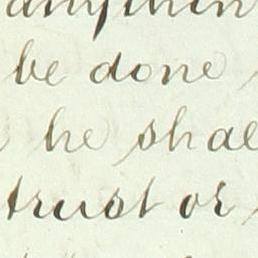 be done
he shal
trust or